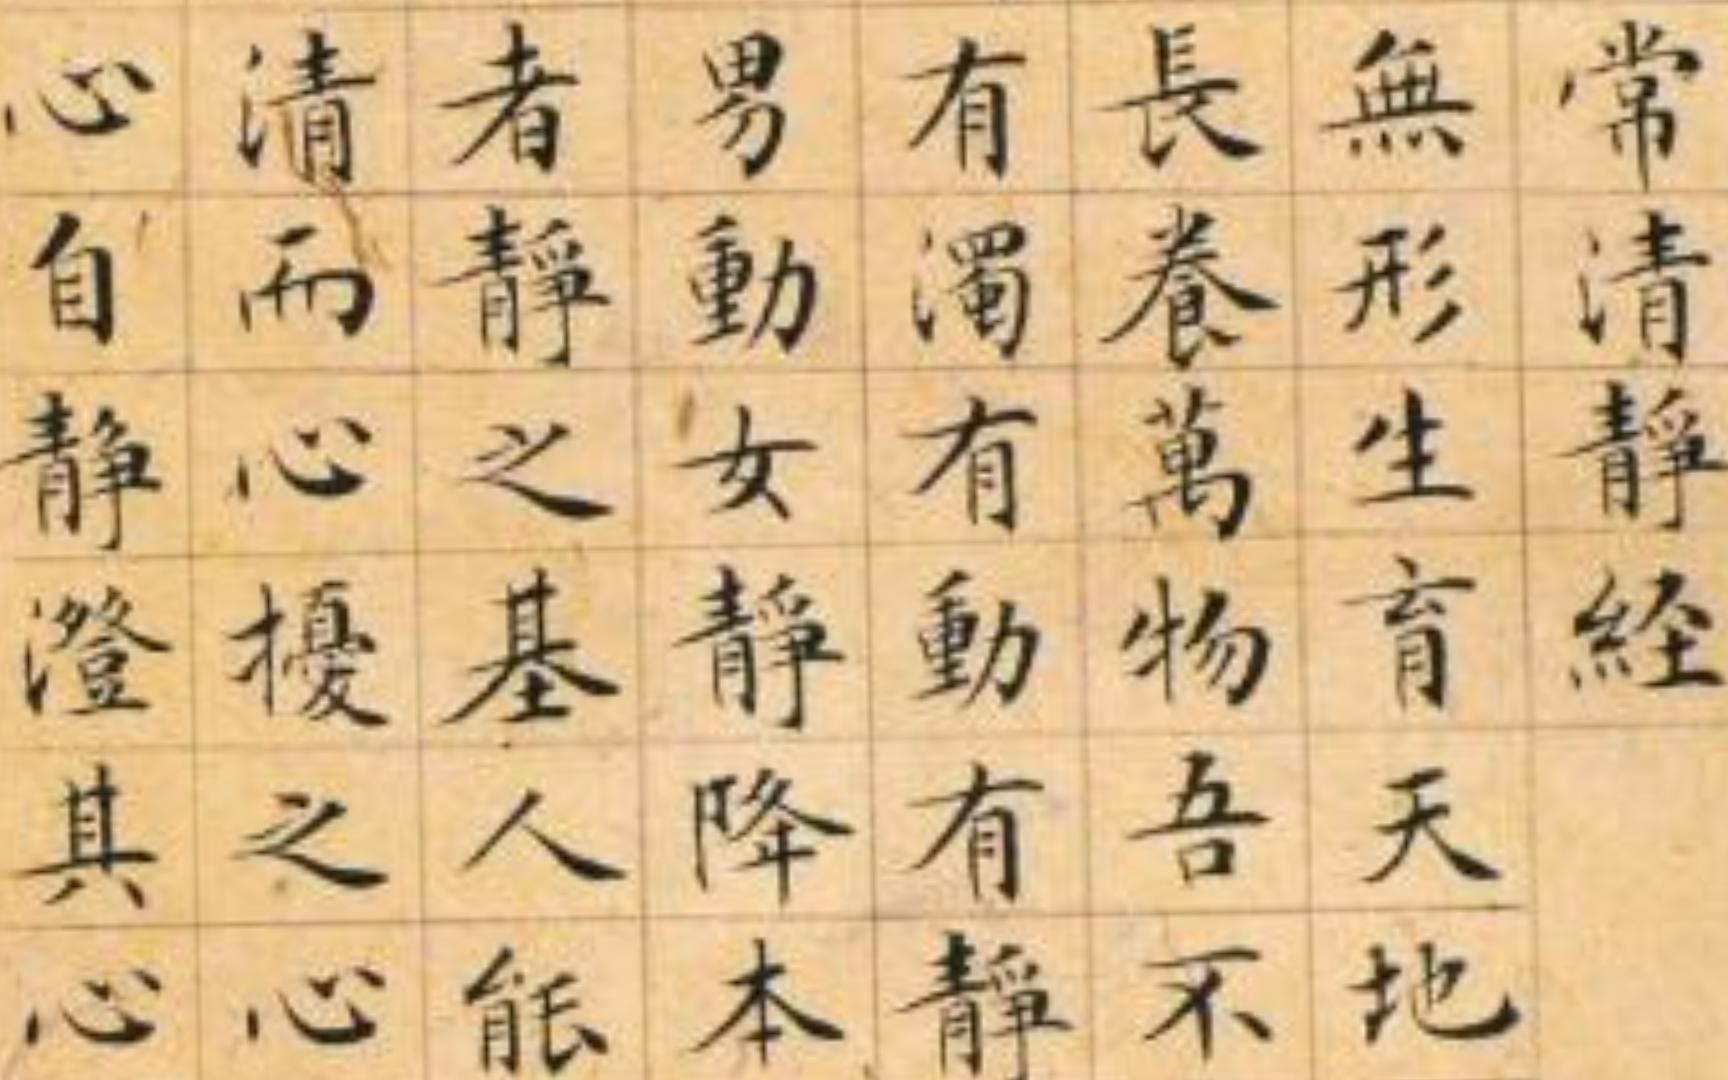 常清靜経
無形生育天地
長養萬物吾不
有濁有動有靜
男動女靜降本
者靜之基人能
清而心擾之心
心自静澄其心